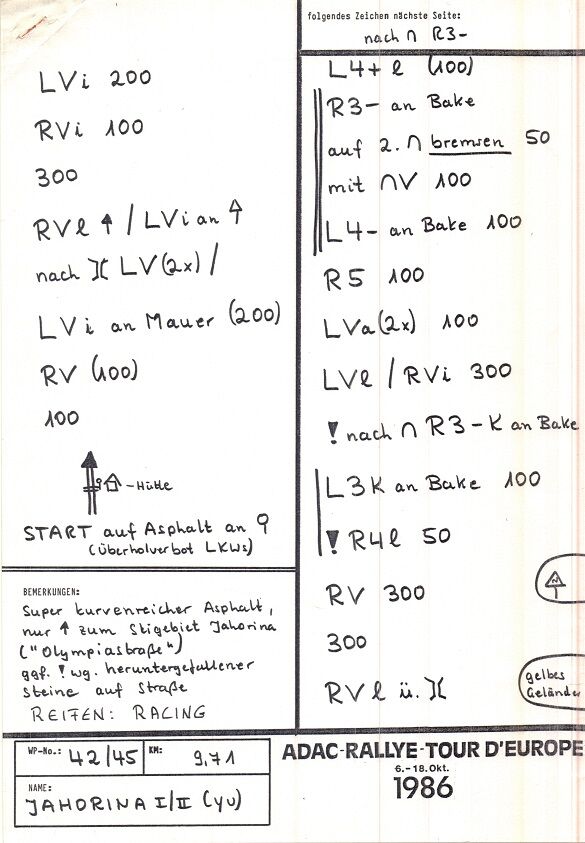 folgendes Zeichen nächste Seite:
nach ∩ R3-
LVi 200
RVi 100
300
RVl ↑ / LVi an ↑
nach )( LV(2x) /
LVi an Mauer (200)
RV (100)
100
-Hütte
START auf Asphalt an
(Überholverbot LKWs)
BEMERKUNGEN:
Super kurvenreicher Asphalt,
nur ↑ zum Skigebiet Jahorina
("Olympiastraße")
ggf. ! wg. heruntergefallener
Steine auf Straße
REIFEN: RACING
L4+ l (100)
R3- an Bake
auf 2. ∩ bremsen 50
mit ∩V 100
L4- an Bake 100
R5 100
LVa(2x) 100
LVl / RVi 300
! nach ∩ R3-K an Bake
L3K an Bake 100
! R4l 50
RV 300
300
RVl ü. )(
gelbes
Geländer
WP-No.: 42/45 KM: 9,71
NAME:
JAHORINA I/II (YU)
ADAC-RALLYE-TOUR D'EUROPE
6.-18.Okt.
1986